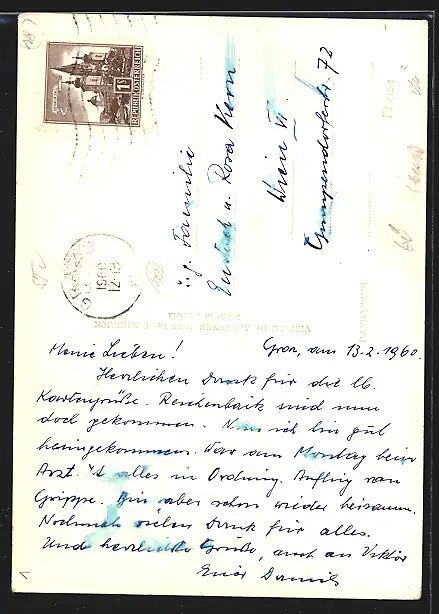 REPUBLIK ÖSTERREICH
Familie
u. Rosa Kern
Wien VI
Gumpendorferstr. 72
1960
Meine Lieben!
Graz, am 13.2.1960.
Herzlichen Dank für die lb.
Kartengrüße. sind nun
doch gekommen. Nun ich bin gut
heimgekommen. War am Montag beim
Arzt. Ist alles in Ordnung. Anflug von
Grippe. Bin aber schon wieder beisamm.
Nochmals vielen Dank für alles.
Und herzliche Grüße, auch an Viktor
Euer